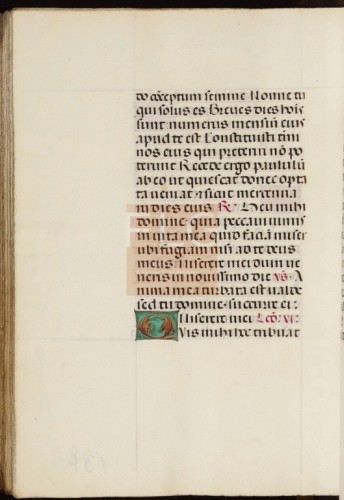 do conceptum semine Nonne tu
qui solus es Breues dies hoīs
sunt numerus mensiū eius
apud te est Constituisti tmī
nos eius qui preteriri nō po
terunt Recede ergo paululū
ab eo ut quiescat donec opta
ta ueniat et sicut mercenna
rii dies eius R. Heu mihi
domine quia peccaui nimis
in uita mea quid faciā miser
ubi fugiam nisi ad te deus
meus Miserere mei dum ue
neris in nouissimo die vs. A
nima mea turbata est ualde
sed tu domine succurre ei
Miserere mei Lcō. vi.
Quis mihi hoc tribuat